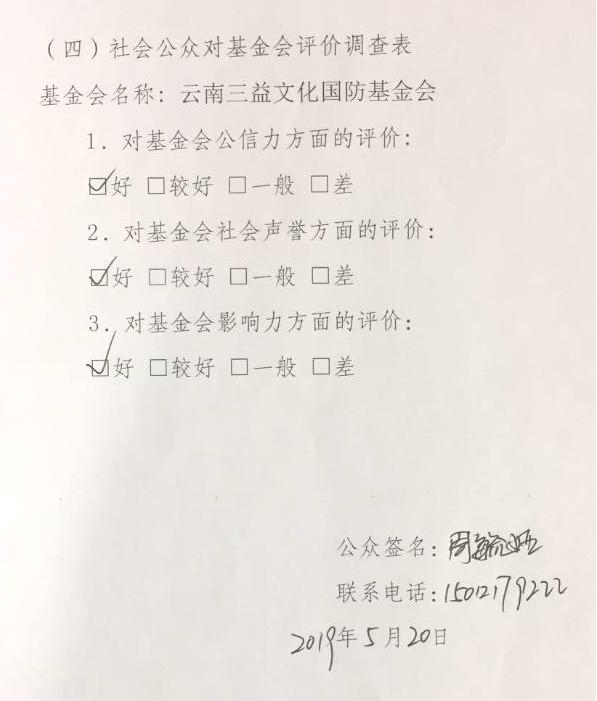 （四）社会公众对基金会评价调查表
基金会名称：云南三益文化国防基金会
1. 对基金会公信力方面的评价：
☑好 □较好 □一般 □差
2. 对基金会社会声誉方面的评价：
☑好 □较好 □一般 □差
3. 对基金会影响力方面的评价：
☑好 □较好 □一般 □差
公众签名：周
联系电话：15012179222
2019年5月20日